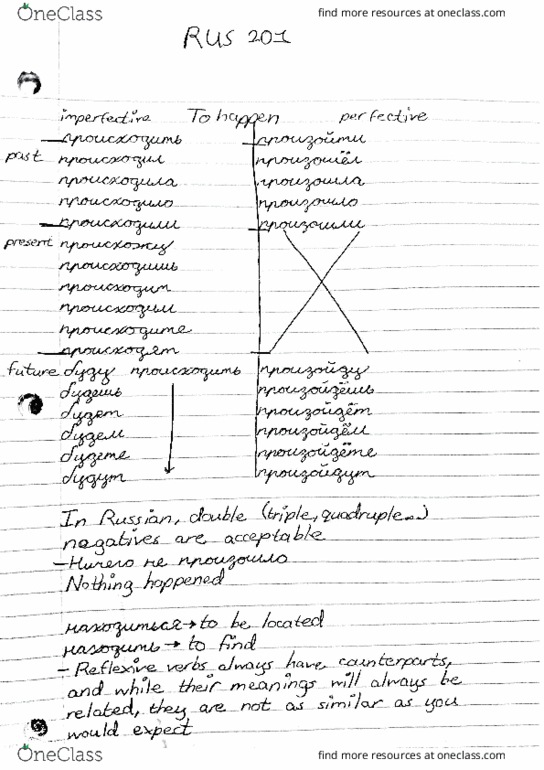 OneClass find more resources at oneclass.com
RUS 201
imperfective To happen perfective
происходить произойти
past происходил произошёл
происходила произошла
происходило произошло
происходили произошли
present происхожу
происходишь
происходит
происходим
происходите
происходят
future буду происходить произойду
будешь произойдёшь
будет произойдёт
будем произойдём
будете произойдёте
будут произойдут
In Russian, double (triple, quadruple...)
negatives are acceptable
– Ничего не произошло
Nothing happened
находиться → to be located
находить → to find
– Reflexive verbs always have counterparts,
and while their meanings will always be
related, they are not as similar as you
would expect
OneClass find more resources at oneclass.com